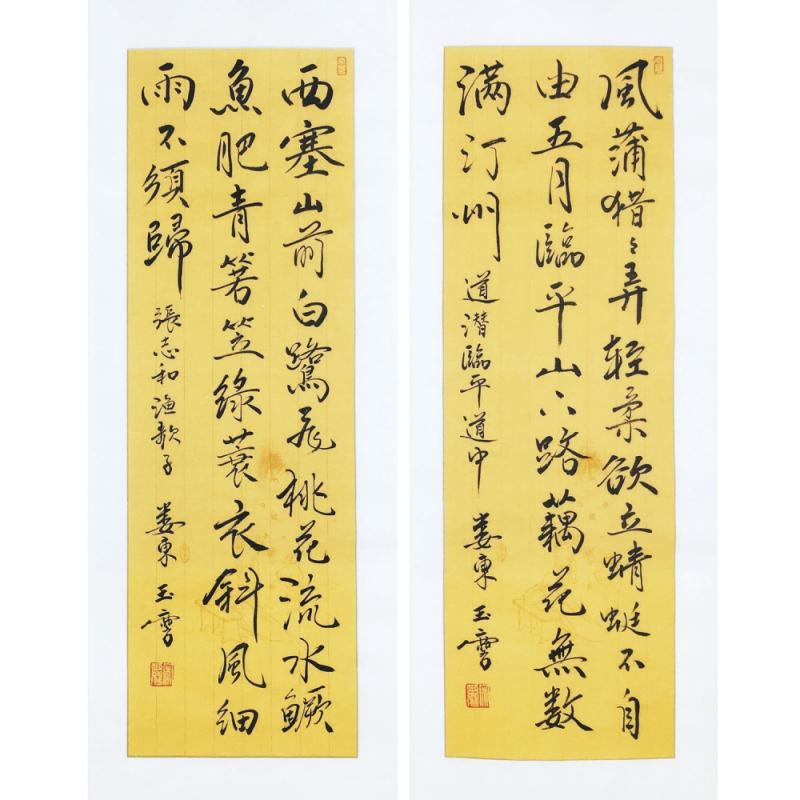 風蒲猎々弄轻柔欲立蜻蜓不自
由五月臨平山下路藕花無数
满汀州
道潜臨平道中 婁東玉
西塞山前白鷺飛桃花流水鱖
魚肥青箬笠緑蓑衣斜風細
雨不須歸
張志和漁歌子 婁東玉